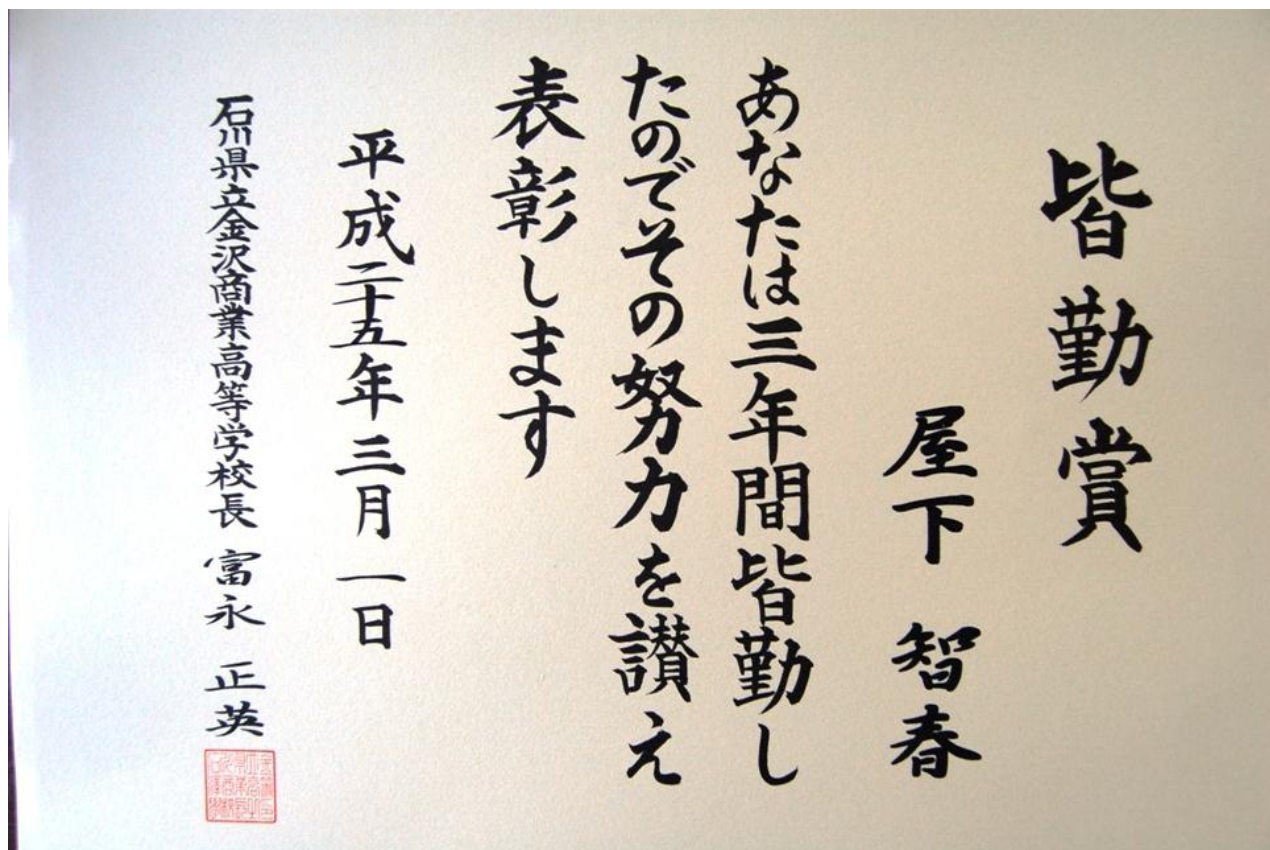 皆勤賞
屋下 智春
あなたは三年間皆勤し
たのでその努力を讃え
表彰します
平成二十五年三月一日
石川県立金沢商業高等学校長 富永 正英